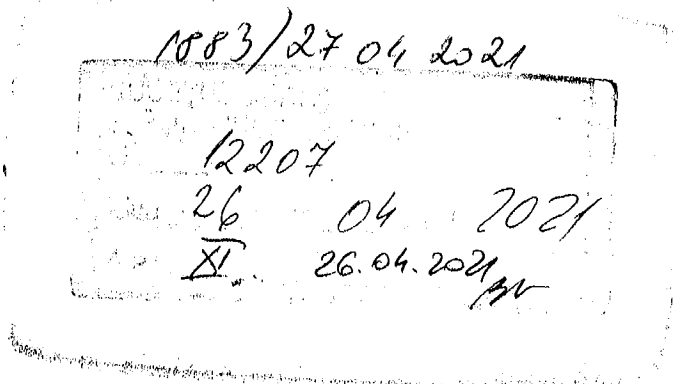 1883/27 04 2021
12207
26 04 2021
XI 26.04.2021